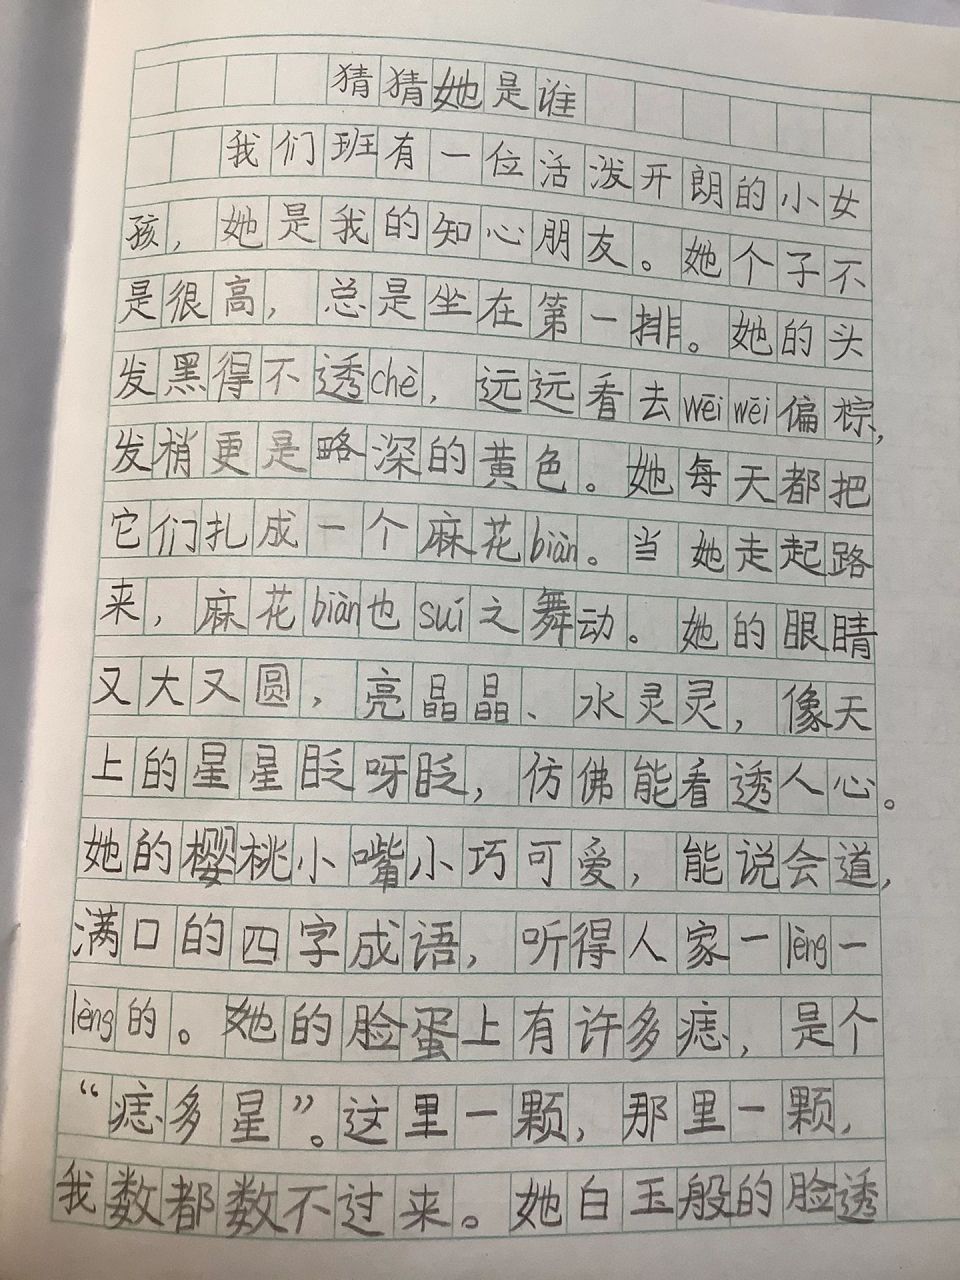 猜猜她是谁
我们班有一位活泼开朗的小女
孩，她是我的知心朋友。她个子不
是很高，总是坐在第一排。她的头
发黑得不透chè，远远看去wēiwēi偏棕，
发梢更是略深的黄色。她每天都把
它们扎成一个麻花biàn。当她走起路
来，麻花biàn也suí之舞动。她的眼睛
又大又圆，亮晶晶、水灵灵，像天
上的星星眨呀眨，仿佛能看透人心。
她的樱桃小嘴小巧可爱，能说会道，
满口的四字成语，听得人家一lèng一
lèng的。她的脸蛋上有许多痣，是个
“痣多星”。这里一颗，那里一颗，
我数都数不过来。她白玉般的脸透